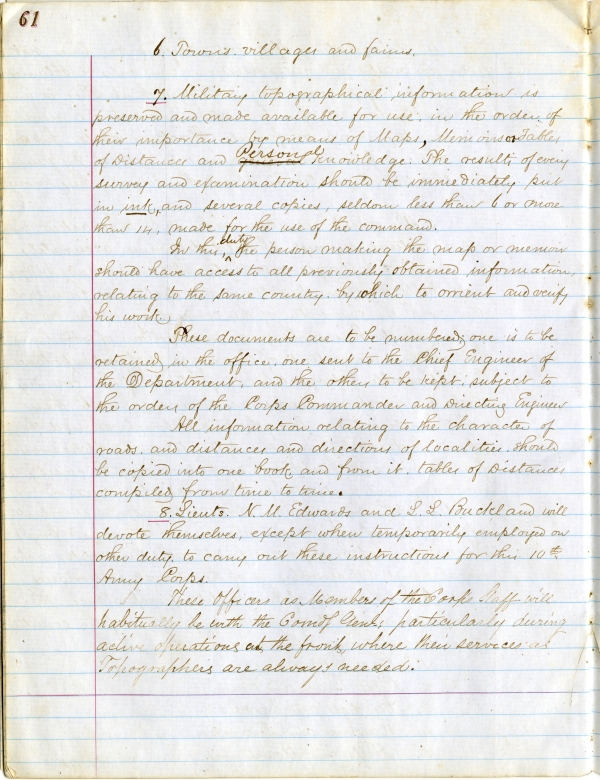 61
6. Towns, villages and farms.
7. Military topographical information is
preserved and made available for use, in the order of
their importance by means of Maps, Memoirs or Tables
of Distances and Personal Knowledge. The results of every
survey and examination should be immediately put
in ink, and several copies, seldom less than 6 or more
than 14, made for the use of the command.
In this duty the person making the map or memoir
should have access to all previously obtained information,
relating to the same country, by which to orrient and verify
his work.
These documents are to be numbered; one is to be
retained in the office, one sent to the Chief Engineer of
the Department, and the others to be kept, subject to
the orders of the Corps Commander and Directing Engineer
All information relating to the character of
roads, and distances and directions of localities, should
be copied into one book, and from it, tables of Distances
compiled from time to time.
8. Lieuts. N. M. Edwards and L. L. Buckland will
devote themselves, except when temporarily employed on
other duty, to carry out these instructions for this 10th
Army Corps.
These Officers as Members of the Corps Staff will
habitually be with the Comd'g Gen'l, particularly during
active operations at the front, where their services as
Topographers are always needed.